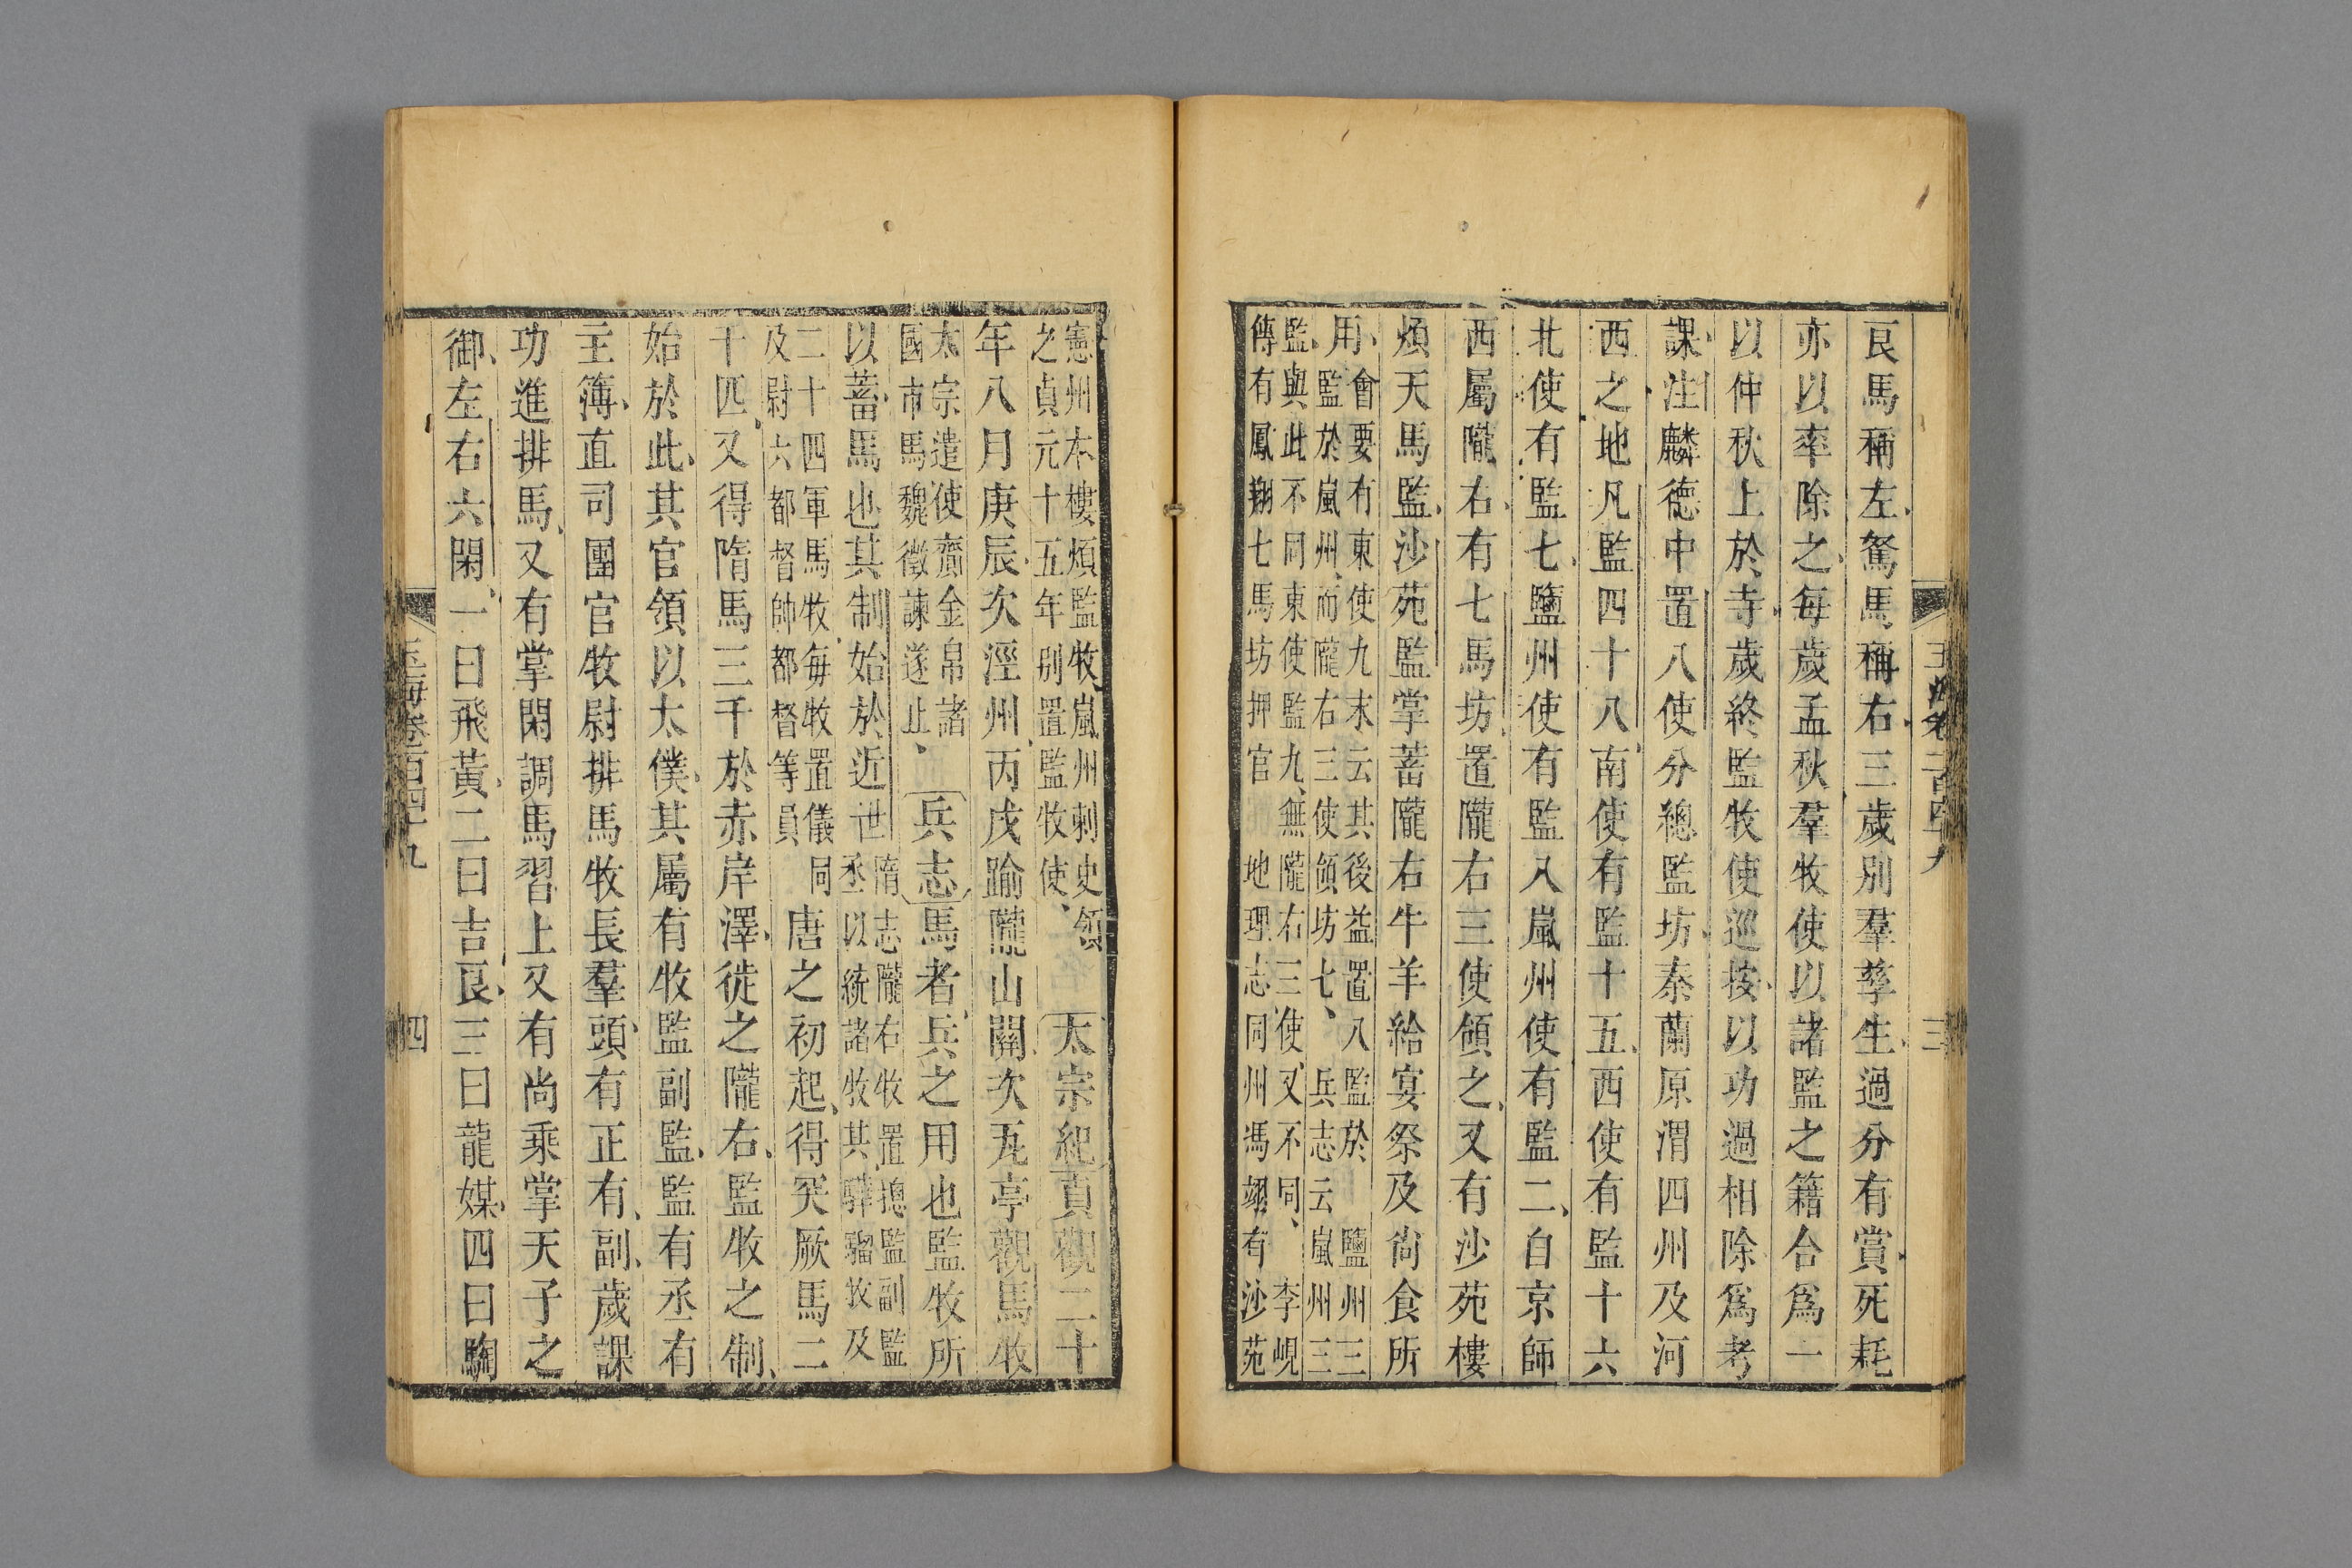 良馬稱左駑馬稱右三歲別羣孳生過分有賞死耗
亦以率除之每歲孟秋羣牧使以諸監之籍合爲一
以仲秋上於寺歲終監牧使巡按以功過相除爲考
課注麟德中置八使分總監坊秦蘭原渭四州及河
西之地凡監四十八南使有監十五西使有監十六
北使有監七鹽州使有監八嵐州使有監二自京師
西屬隴右有七馬坊置隴右三使領之又有沙苑樓
煩天馬監沙苑監掌蓄隴右牛羊給宴祭及尙食所
用會要有東使九末云其後益置八監於鹽州三
監於嵐州而隴右三使領坊七兵志云嵐州三
監與此不同東使監九無隴右三使又不同李峴
傳有鳳翔七馬坊押官地理志同州馮翊有沙苑
玉海卷一百四十九
三
憲州本樓煩監牧嵐州刺史領
之貞元十五年別置監牧使太宗紀貞觀二十
年八月庚辰次涇州丙戌踰隴山關次瓦亭觀馬牧
太宗遣使齎金帛諸
國市馬魏徵諫遂止兵志馬者兵之用也監牧所
以蓄馬也其制始於近世隋志隴右牧置摠監副監
丞以統諸牧其驊騮牧及
二十四軍馬牧每牧置儀同
及尉六都督帥都督等員唐之初起得突厥馬二
十匹又得隋馬三千於赤岸澤徙之隴右監牧之制
始於此其官領以太僕其屬有牧監副監監有丞有
主簿直司團官牧尉排馬牧長羣頭有正有副歲課
功進排馬又有掌閑調馬習上又有尚乘掌天子之
御左右六閑一曰飛黃二曰吉良三曰龍媒四曰騊
玉海卷一百四十九
四